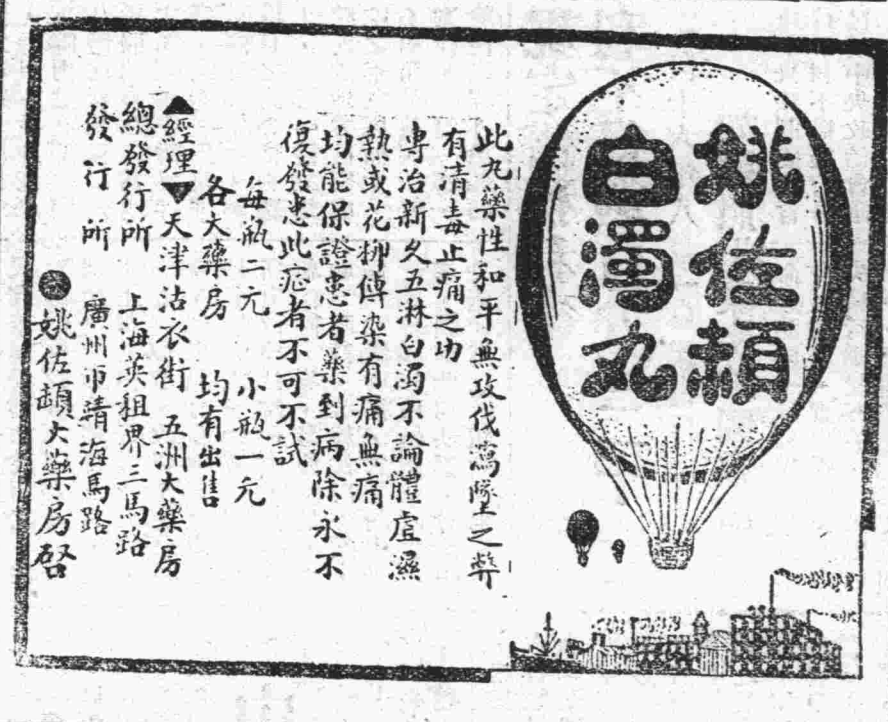 姚佐頔
白濁丸
此丸藥性和平無攻伐瀉墜之弊
有清毒止痛之功
專治新久五淋白濁不論體虛濕
熱或花柳傳染有痛無痛
均能保證患者藥到病除永不
復發患此症者不可不試
每瓶二元 小瓶一元
各大藥房 均有出售
▲經理▼天津沽衣街 五洲大藥房
總發行所 上海英租界三馬路
發行所 廣州市靖海馬路
姚佐頔大藥房啓